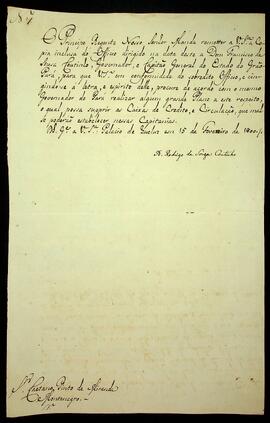 N 4
O Principe Regente Nosso Senhor Manda remetter a V.S.ª a Co-
pia incluza do Officio dirigido na data desta a Dom Francisco de
Souza Coutinho, Governador, e Capitão General do Estado do Grão
Pará, para que V.S.ª em conformidade do sobredito Officio, e cin-
gindo-se á letra, e espirito delle, procure de acordo com o mesmo
Governador do Pará realizar algum grande Plano a este respeito,
o qual possa supprir as Caixas de Credito, e Circulação, que mal
se poderão estabelecer nessas Capitanías.
D.s G.e a V.S.ª Palacio de Queluz em 15 de Fevereiro de 1800
D. Rodrigo de Souza Coutinho
S.r Caetano Pinto de Miranda
Montenegro.